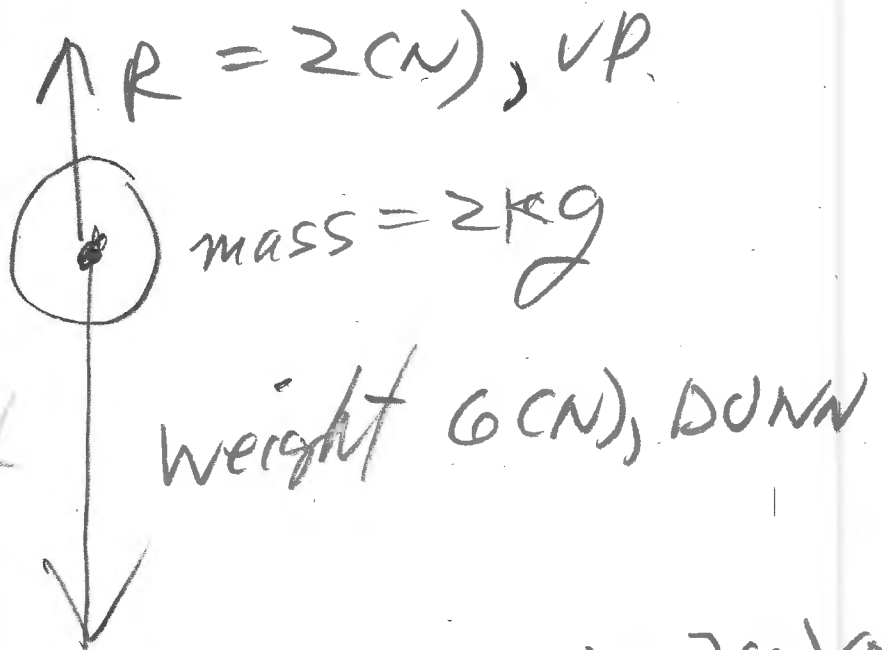 R = 2(N), UP.
mass = 2kg
weight 6(N), DOWN